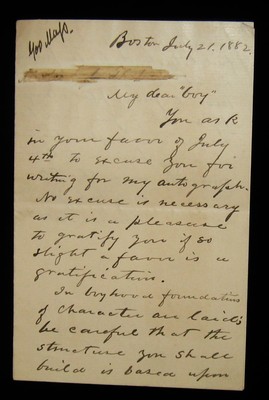 Boston July 21. 1882.
My dear "boy"
You ask
in your favor of July
4th to excuse you for
writing for my autograph.
No excuse is necessary
as it is a pleasure
to gratify you if so
slight a favor is a
gratification.
In boyhood foundations
of character are laid &
be careful that the
structure you shall
build is based upon